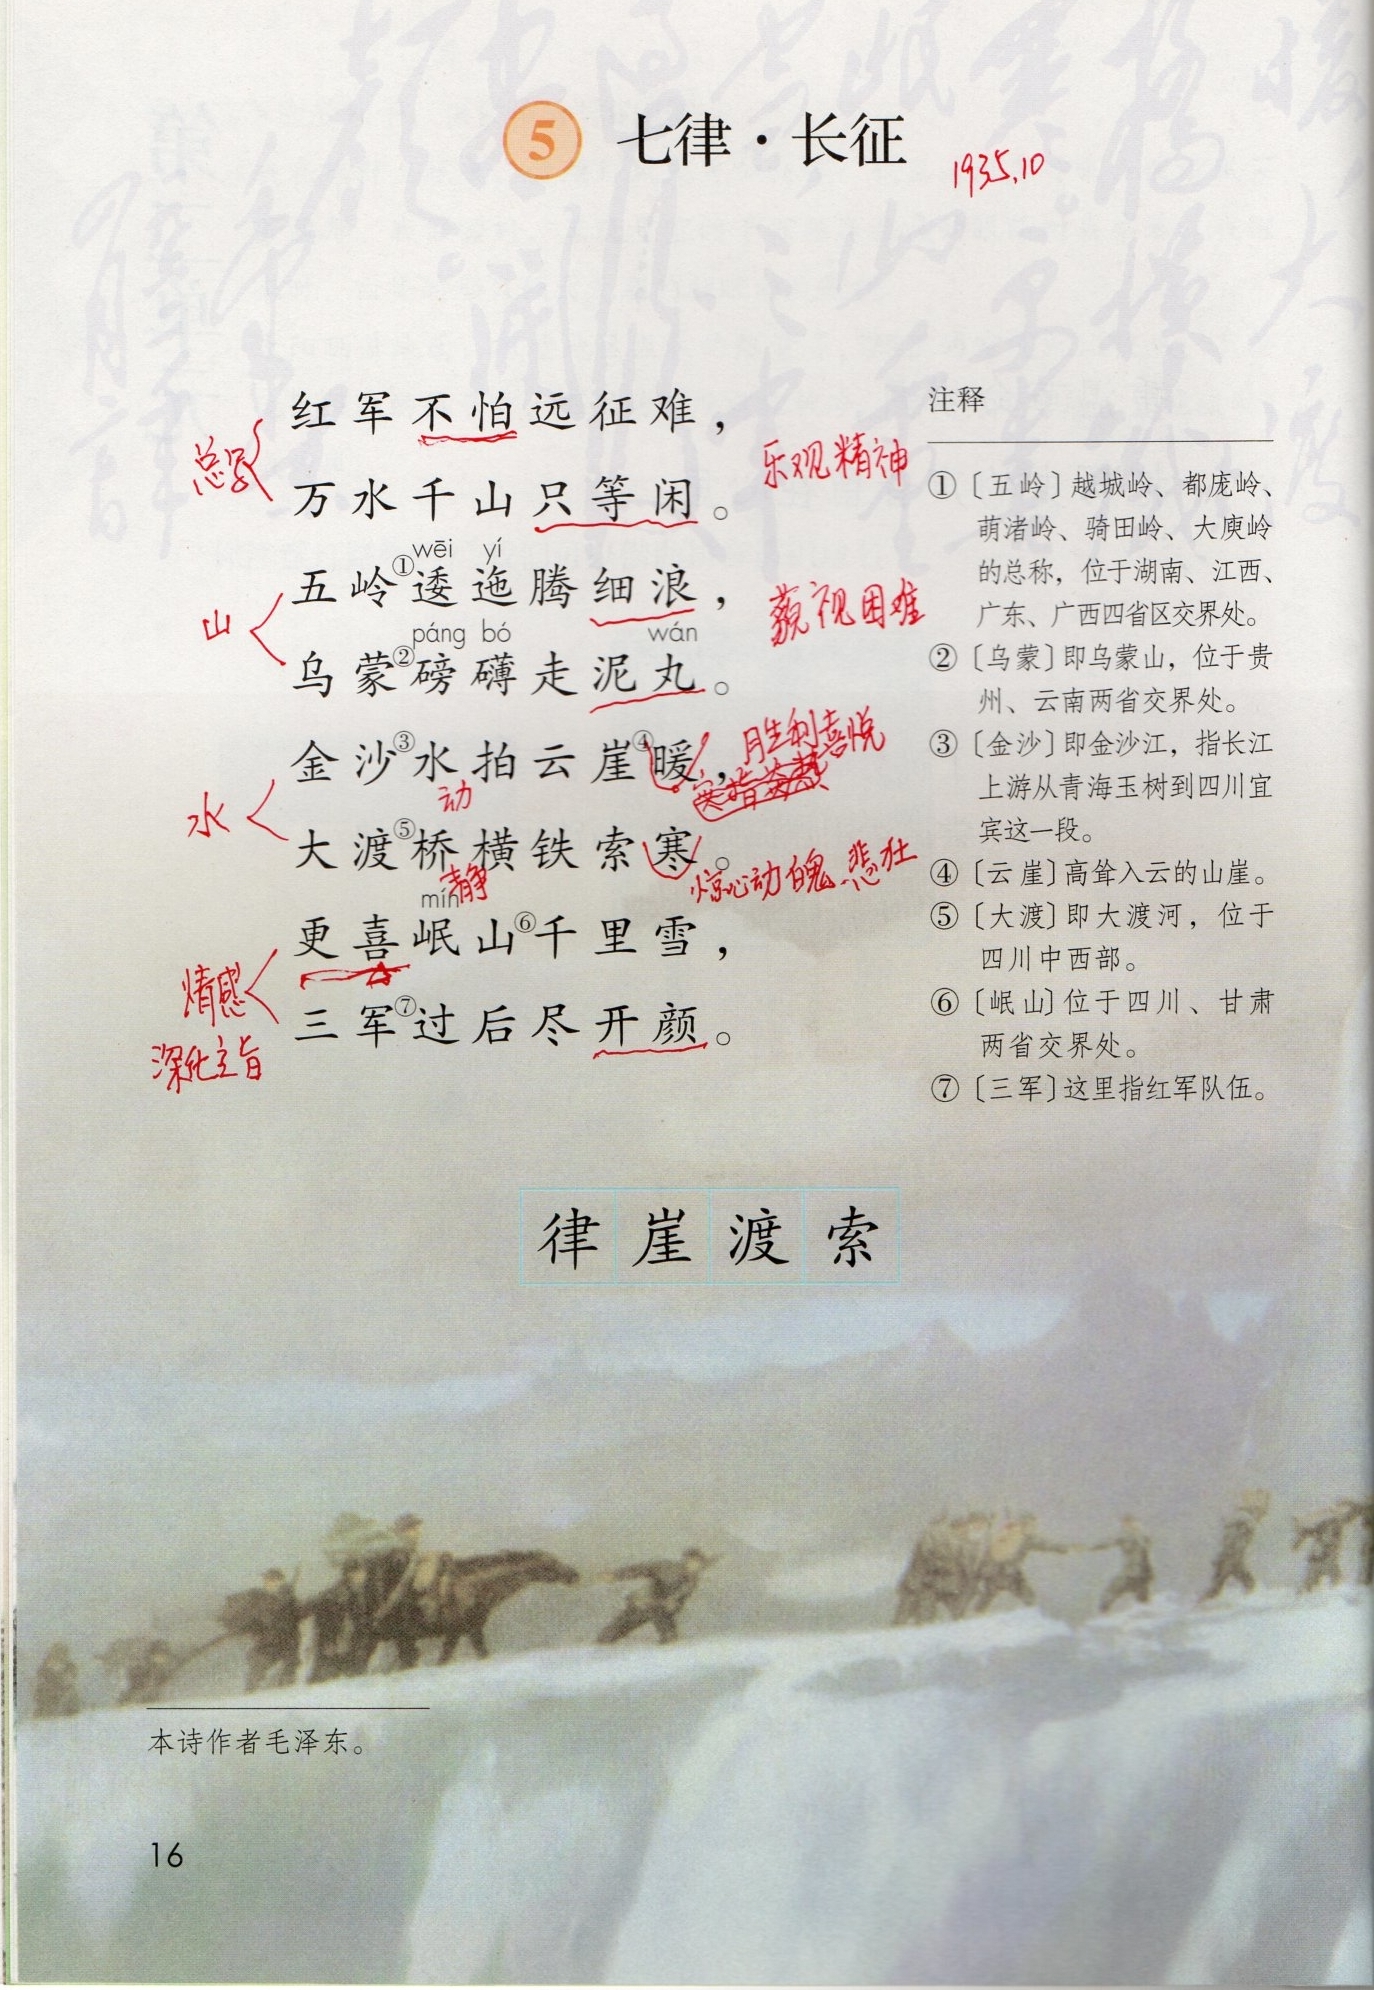 5 七律·长征
1935.10
红军不怕远征难，
万水千山只等闲。
总写
乐观精神
wēi yí
五岭①逶迤腾细浪，
páng bó wán
乌蒙②磅礴走泥丸。
山
藐视困难
金沙③水拍云崖④暖，
动
胜利喜悦
大渡⑤桥横铁索寒。
静
水
惊心动魄 悲壮
mín
更喜岷山⑥千里雪，
三军⑦过后尽开颜。
情感
深化主旨
注释
①〔五岭〕越城岭、都庞岭、
萌渚岭、骑田岭、大庾岭
的总称，位于湖南、江西、
广东、广西四省区交界处。
②〔乌蒙〕即乌蒙山，位于贵
州、云南两省交界处。
③〔金沙〕即金沙江，指长江
上游从青海玉树到四川宜
宾这一段。
④〔云崖〕高耸入云的山崖。
⑤〔大渡〕即大渡河，位于
四川中西部。
⑥〔岷山〕位于四川、甘肃
两省交界处。
⑦〔三军〕这里指红军队伍。
律崖渡索
本诗作者毛泽东。
16